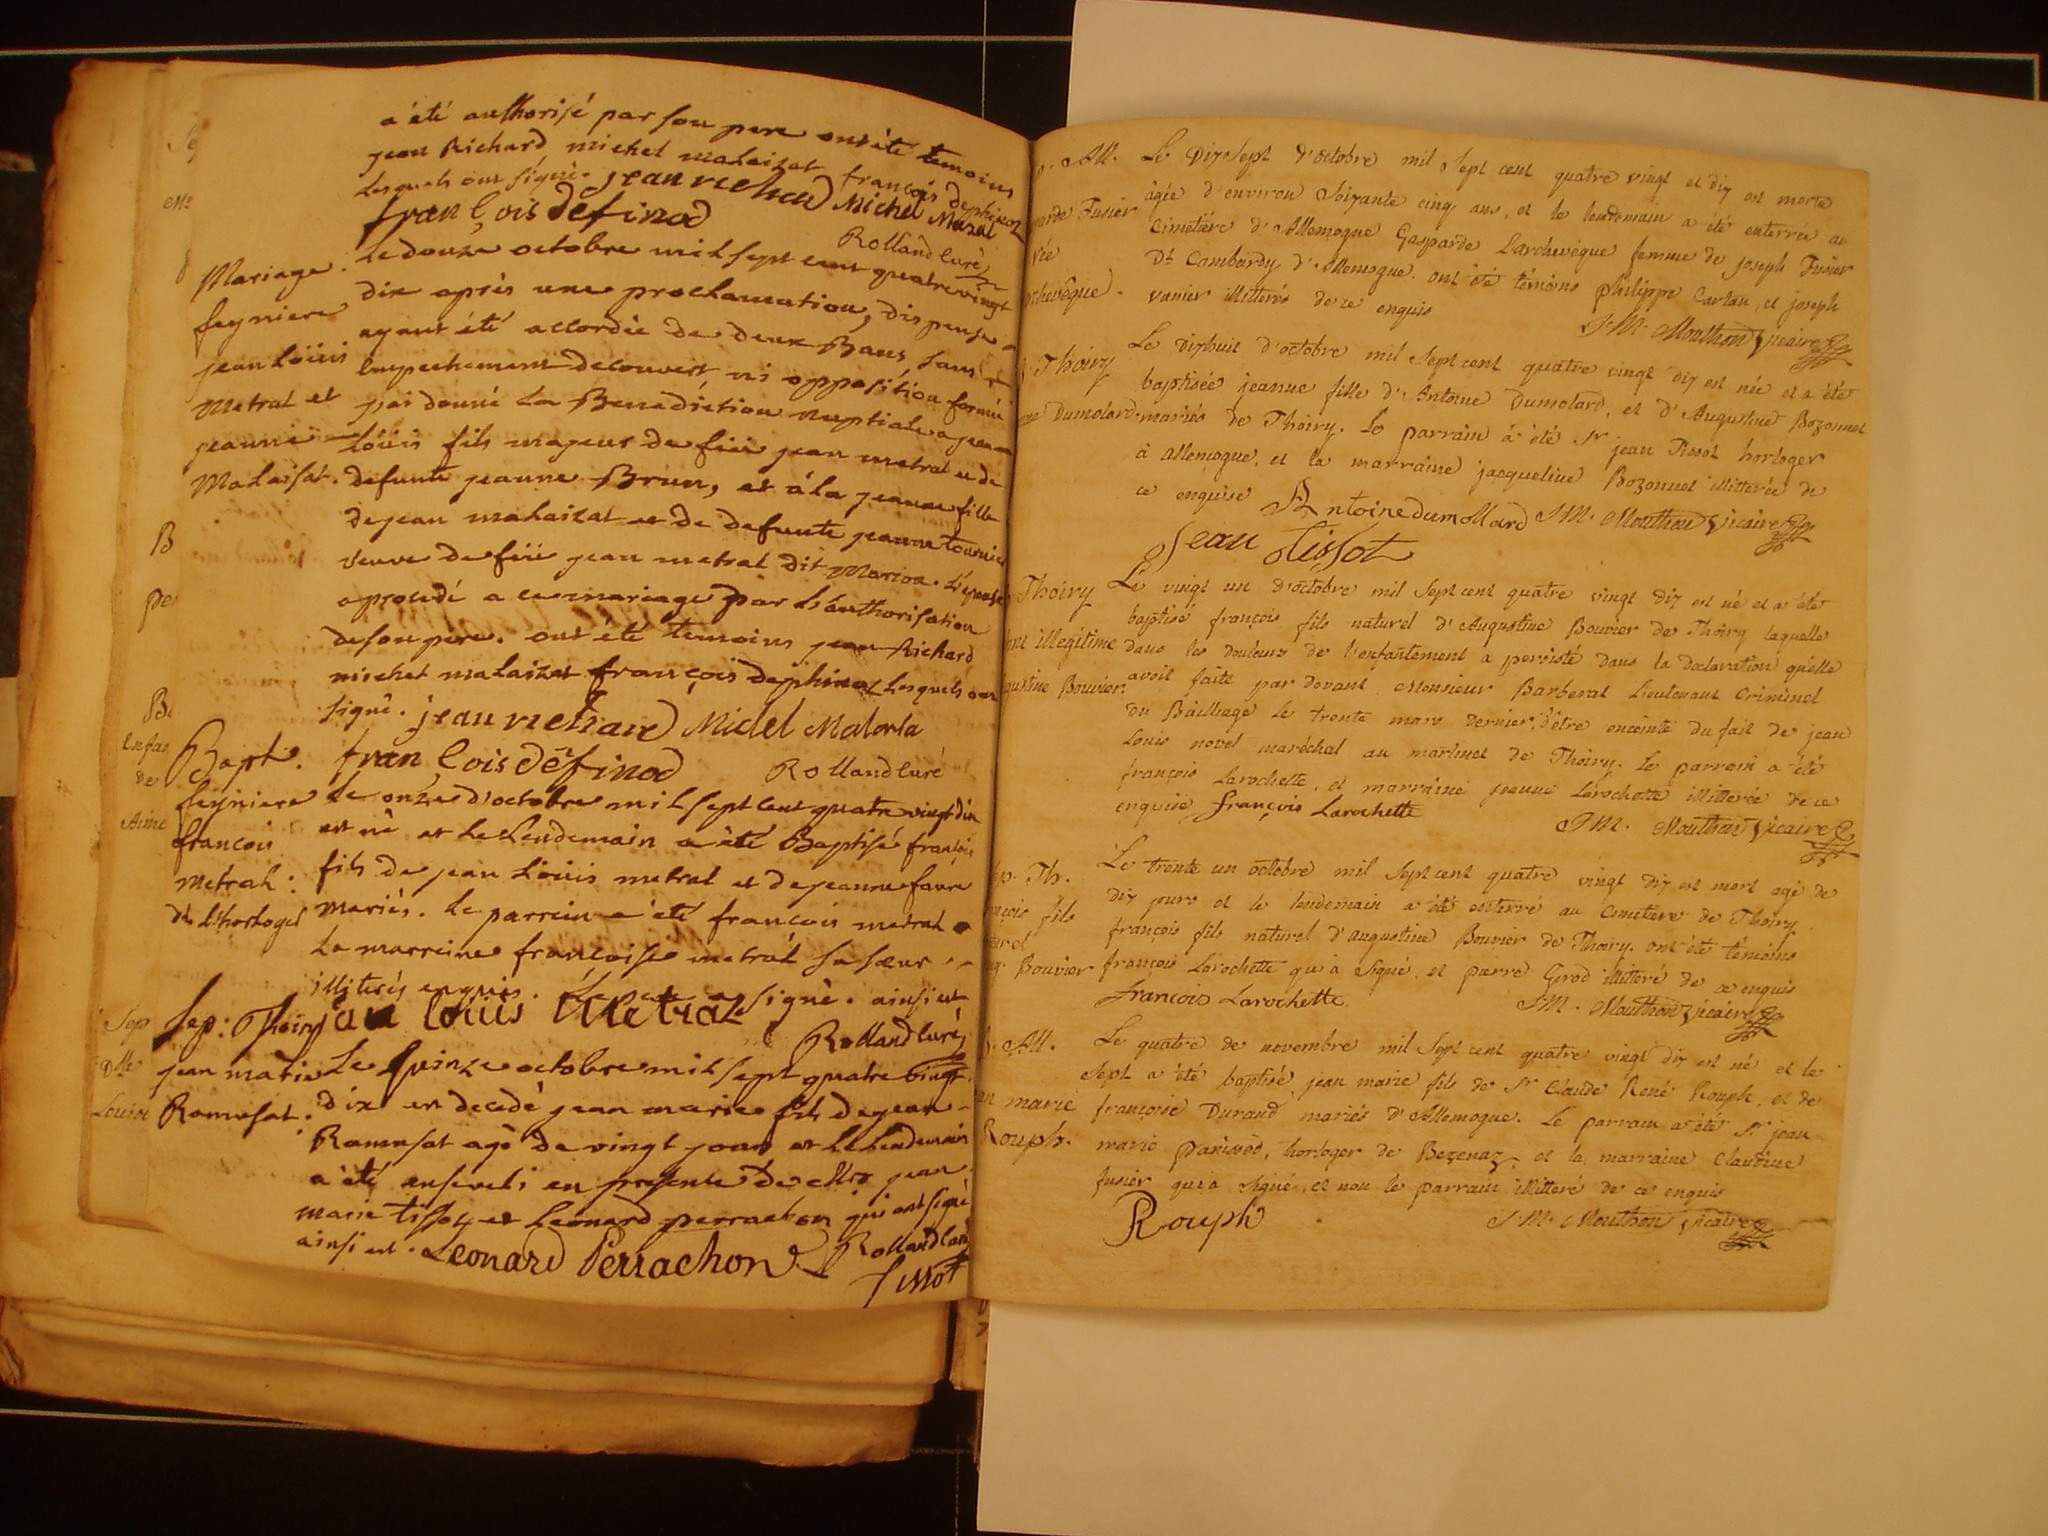 a été authorisé par son pere ont été temoins
jean Richard michel malaizat françois dephinoz
lesquels ont signé. jean richard Michel Mazal
françois definod
Rolland curé
Mariage.
feyniere
jean Loüis
Metral et
jeanne
Malaisat.
Le douze octobre mil sept cent quatre vingt
dix après une proclamation, dispense
ayant été accordée de deux Bans, sans
Empechement decouvert, ni opposition formée
j'ai donné La Benediction nuptiale a jean
Loüis fils majeur de feü jean metral et de
defunte jeanne Brun, et à la jeanne fille
de jean malaizat et de defunte jeanne tournier
veuve de feü jean metral dit Marion. L'épouse
a procedé a ce mariage par L'authorisation
de son pere. ont été temoins jean Richard
michel malaizat françois dephinoz Lesquels ont
signé. jean richard Michel Malorla
françois définod
Rolland curé
Bapt.
feyniere
françois
Metral:
dt l'horloger
Le onze d'octobre mil sept cent quatre vingt dix
est né et le Lendemain a été Baptisé françois
fils de jean Loüis metral et de jeanne favre
Mariés. Le parrein a été françois metral
La marreine françoise metral sa sœur
illiterés enquis. Le pere a signé. ainsi est
jean louis Metral
Rolland curé
Sep: Thoiry
jean marie
Ramusat.
Le Quinze octobre mil sept quatre vingt
dix est decedé jean marie fils de jean
Ramusat agé de vingt jours et le Lendemain
a été enseveli en presence de Mrs jean
marie tissot et Leonard perrachon qui ont signé
ainsi est. Leonard Perrachon
Rolland curé
Tissot
All.
Fusier
Le Dix sept d'octobre mil sept cent quatre vingt et dix est morte
âgée d'environ Soixante cinq ans, et le lendemain a été enterrée au
Cimetière d'Allemogne Gasparde Larchevêque femme de joseph Fusier
Dt Cambardy d'Allemogne. ont été témoins philippe Cartan, et joseph
vanier illitterés de ce enquis
J. M. Mouthon Vicaire
Thoiry
Dumolard
Le dixhuit d'octobre mil sept cent quatre vingt dix est née et a été
baptisée jeanne fille d'Antoine Dumolard, et d'Augustine Bozonnet
mariés de Thoiry. Le parrain a été Sr jean Tissot horloger
à allemogne, et la marraine jacqueline Bozonnet illitterée de
ce enquise Antoine dumollard J. M. Mouthon Vicaire
Jean Tissot
Thoiry
illegitime
Bouvier
Le vingt un d'octobre mil sept cent quatre vingt dix est né et a été
baptisé françois fils naturel d'Augustine Bouvier de Thoiry laquelle
dans les douleurs de l'enfantement a persisté dans la declaration qu'elle
avoit faite par devant Monsieur Barberat Lieutenant Criminel
du Bailliage le trente mars dernier, d'être enceinte du fait de jean
Louis novel maréchal au martinet de Thoiry. Le parrain a été
françois Larochette, et marraine jeanne Larochette illitterée de ce
enquise françois Larochette
J. M. Mouthon Vicaire
Th.
fils
Bouvier
Le trente un octobre mil sept cent quatre vingt dix est mort agé de
dix jours et le lendemain a été enterré au Cimetière de Thoiry
françois fils naturel d'augustine Bouvier de Thoiry. ont été témoins
françois Larochette qui a signé, et pierre Girod illitteré de ce enquis
françois Larochette
J. M. Mouthon Vicaire
All.
marie
Rouph.
Le quatre de novembre mil sept cent quatre vingt dix est né et le
sept a été baptisé jean marie fils de Sr Claude René Rouph, et de
françoise Durand mariés d'Allemogne. Le parrain a été Sr jean
marie parissod, horloger de Bezenaz, et la marraine Claudine
fusier qui a signé, et non le parrain illitteré de ce enquis
Rouph
J. M. Mouthon Vicaire